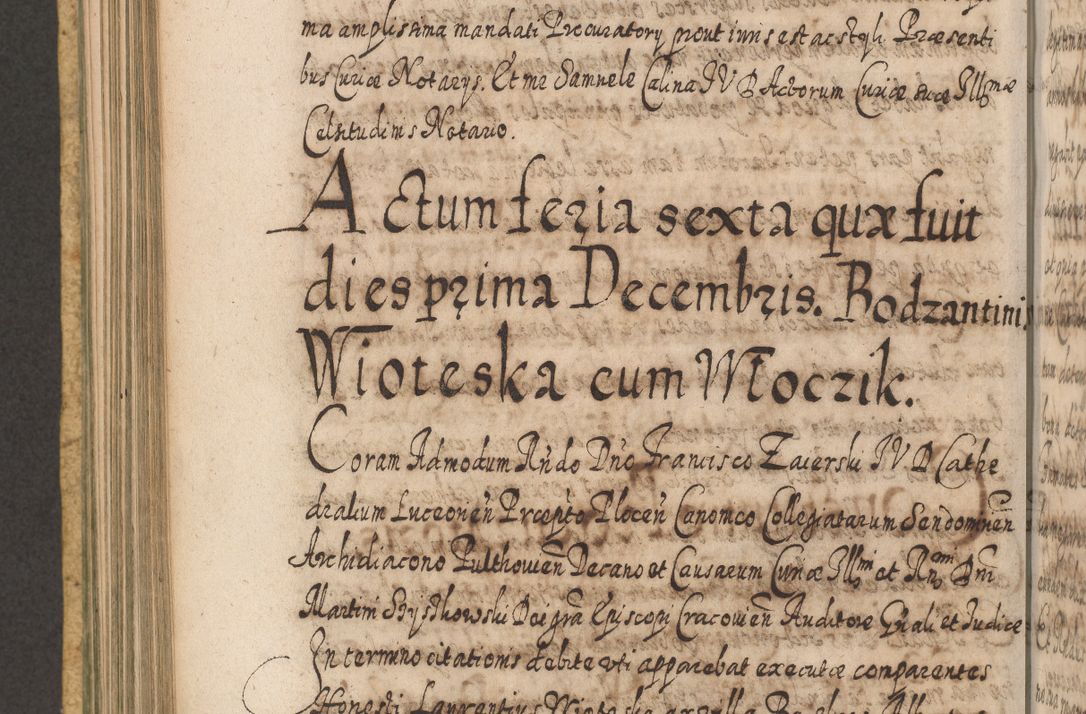 ma amplissima mandati Procuratorÿ prout iuris est ac styli. Præsenti
bus Curiæ Notarÿs. Et me Samuele Calina IVD Actorum Curiæ suæ Illmæ
Celsitudinis Notario.
Actum feria sexta quæ fuit
dies prima Decembris. Bodzantinis
Wioteska cum Włoczik.
Coram Admodum Rńdo Dńo Francisco Zaierski IVD Cathe
dralium Luceorień Præpto Ploceń Canonico Collegiatarum Sendomirień
Archidiacono Pulthowień Decano et Causarum Curiæ Illmi et Rńmi Dńi
Martini Szyszkowski Dei gra Episcopi Cracowień Auditore Gnali et Iudice
In termino citationis debite uti apparebat executæ comparentes
Honesti Laurentius Wioteska